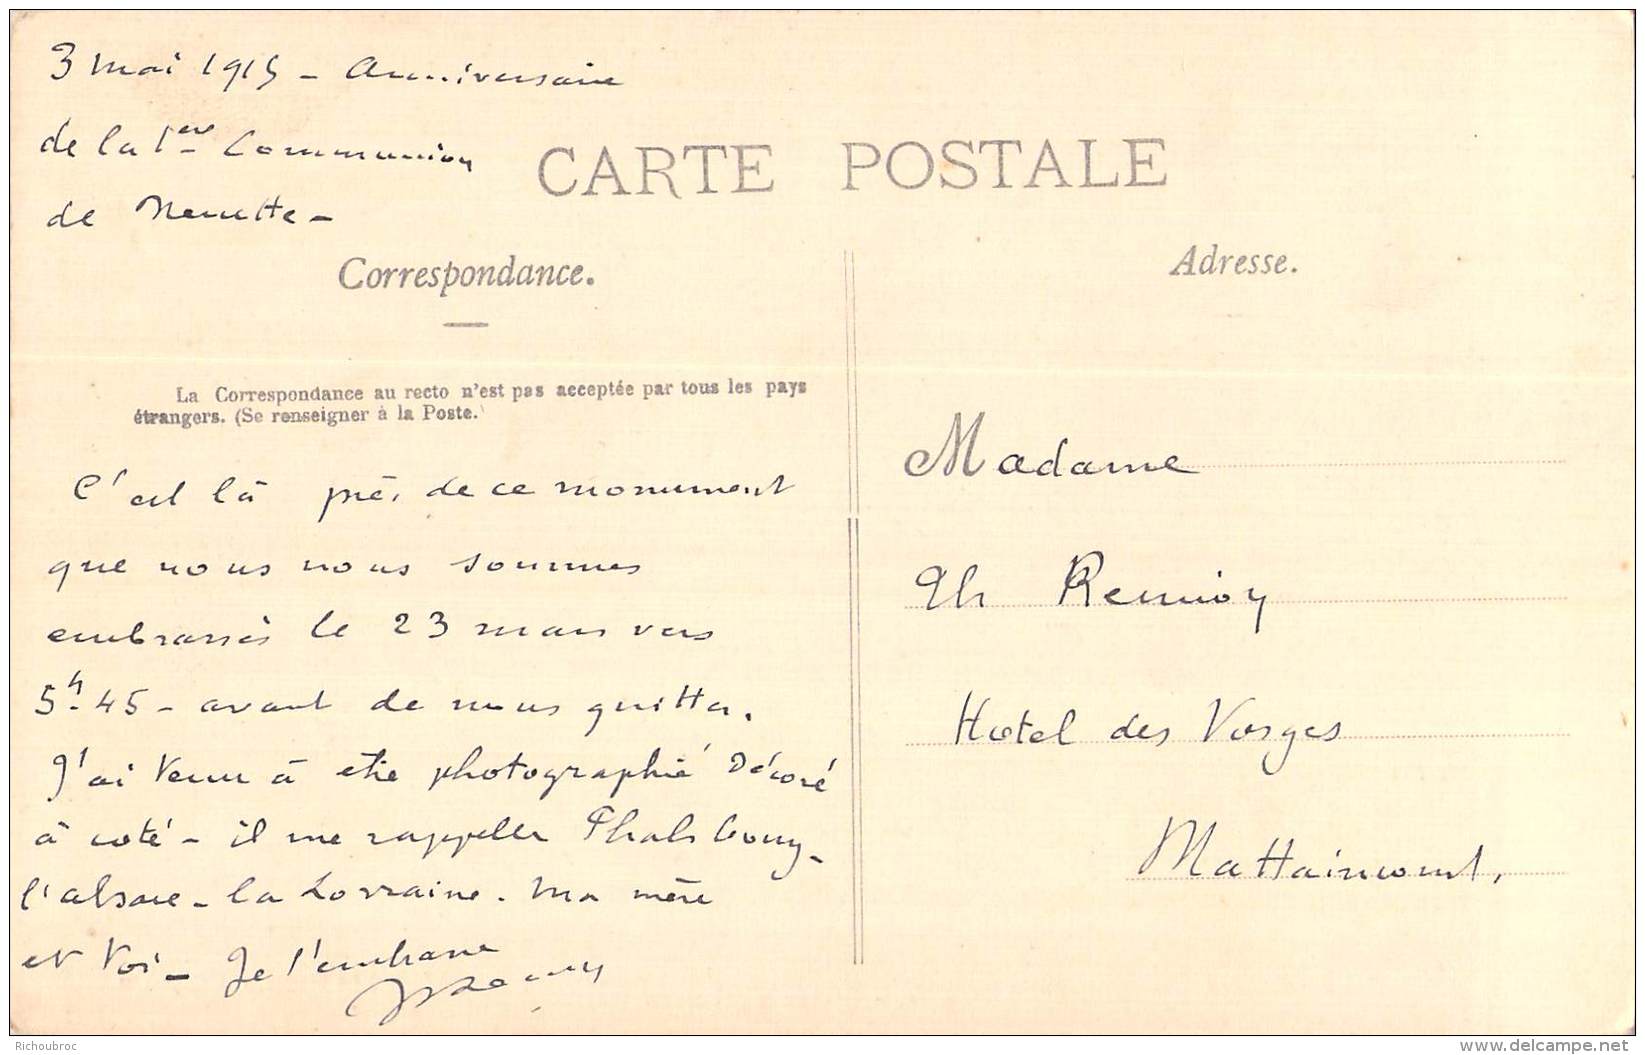 3 mai 1915 - Anniversaire
de la 1ere Communion
de Nenette -
CARTE POSTALE
Correspondance.
Adresse.
La Correspondance au recto n'est pas acceptée par tous les pays
étrangers. (Se renseigner à la Poste.)
C'est là près de ce monument
que nous nous sommes
embrassés le 23 mars vers
5h 45 - avant de nous quitter.
J'ai tenu à être photographié Décoré
à coté - il me rappelle Phalsbourg -
l'alsace - la Lorraine. Ma mère
et toi - Je t'embrasse
Madame
Th Remioy
Hotel des Vosges
Mattaincourt.
Richoubroc
delcampe.net